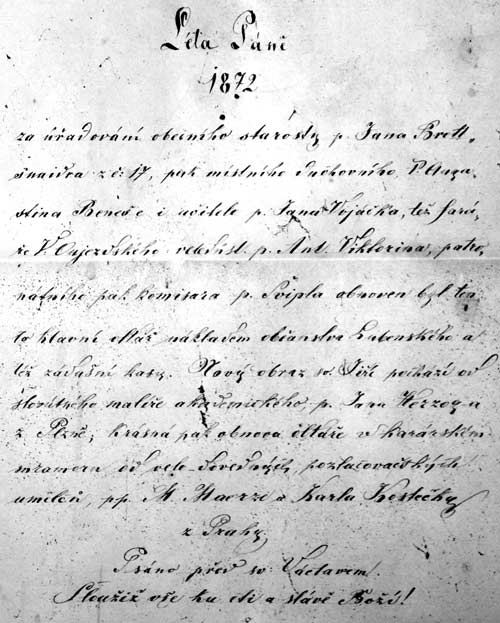 Léta Páně
1872
za úřadování obecního starosty p. Jana Brett„
šnaidra z č: 17, pak místního duchovního, P. Augu„
stina Beneše i učitele p. Jana Vojáčka, též fará„
ře V. Oujezdského veledůst. p. Ant. Viktorina, patro„
nátního pak komisara p. Svipla obnoven byl ten„
to hlavní oltář nákladem občanstva
též zádušní kasy. Nový obraz sv. Jiří pochází od
slovutného malíře akademického, p. Jana Herzoga
z Plzně; krásná pak obnova oltáře v kararském
mramoru od velo-dovedných pozlacovačských
umělců, pp. M. a Karla Kostečky
z Prahy.
Psáno před sv. Václavem.
Sloužiž vše ku cti a slávě Boží!